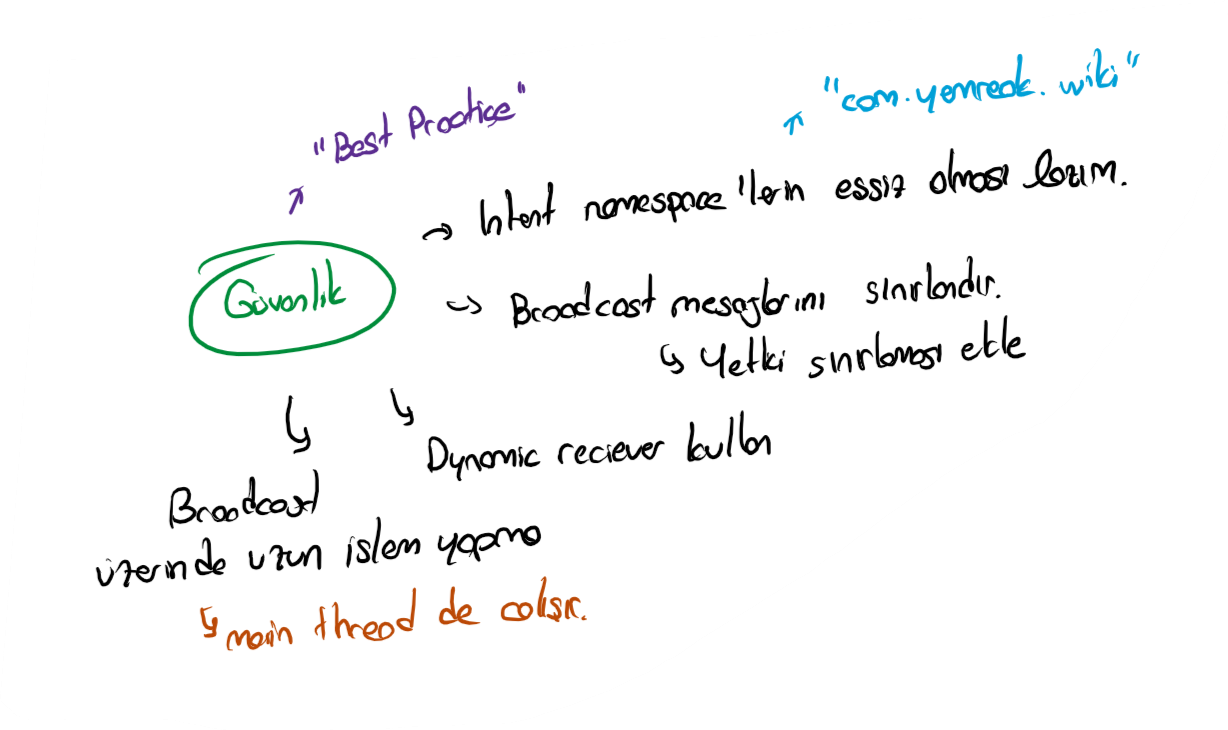 "Best Practice"
"com.yemreak.wiki"
Intent namespace'lerin essiz olması lazım.
Güvenlik
Broadcast mesajlarını sınırlandır.
Yetki sınırlaması ekle
Dynamic reciever kullan
Broadcast
üzerinde uzun islem yapma
main thread de calısır.